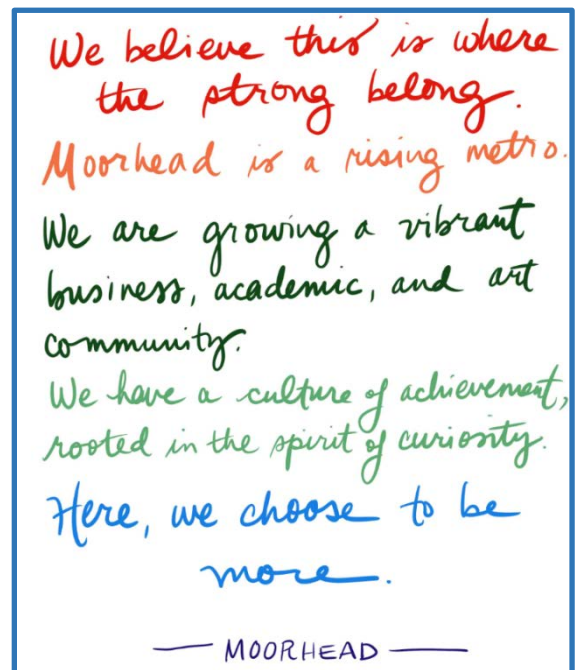 We believe this is where
the strong belong.
Moorhead is a rising metro.
We are growing a vibrant
business, academic, and art
community.
We have a culture of achievement,
rooted in the spirit of curiosity.
Here, we choose to be
more.
— MOORHEAD —